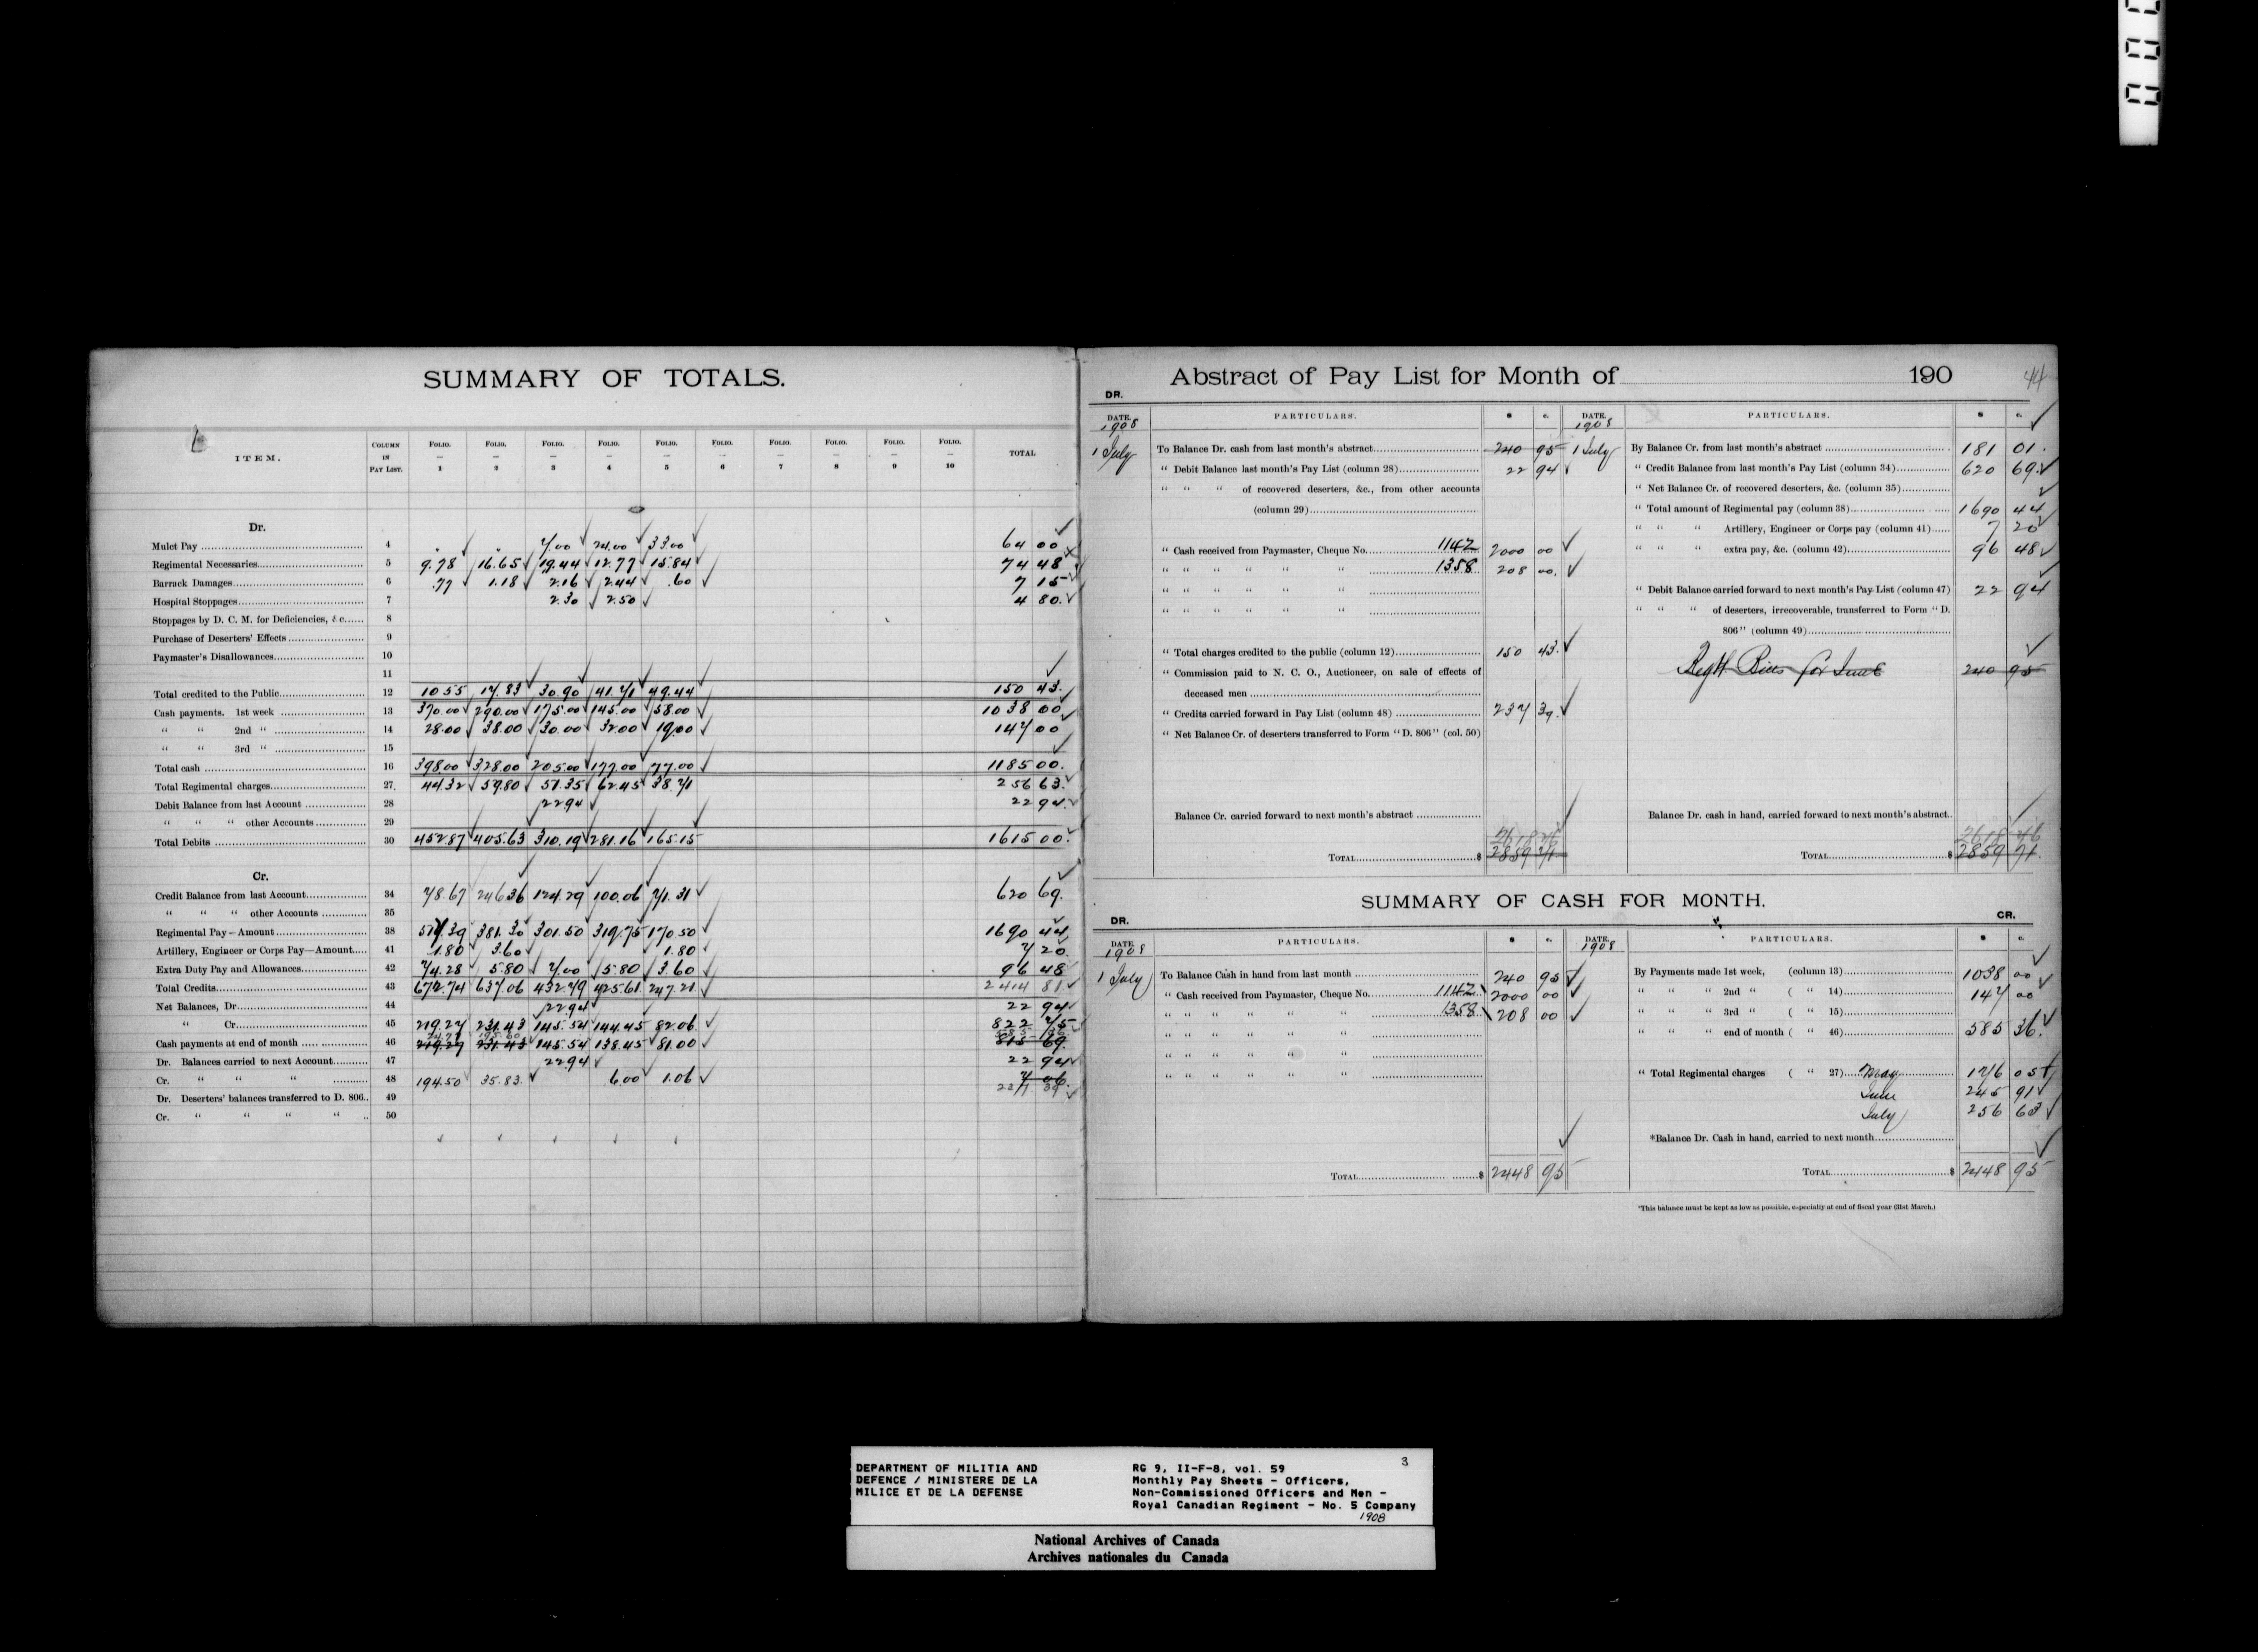 SUMMARY OF TOTALS.
ITEM. COLUMN IN PAY LIST. FOLIO. — 1 FOLIO. — 2 FOLIO. — 3 FOLIO. — 4 FOLIO. — 5 FOLIO. — 6 FOLIO. — 7 FOLIO. — 8 FOLIO. — 9 FOLIO. — 10 TOTAL
Dr.
Mulct Pay 4 7.00 24.00 33.00 64 00
Regimental Necessaries 5 9.78 16.65 19.44 12.77 15.84 74 48
Barrack Damages 6 .77 1.18 2.16 2.44 .60 7 15
Hospital Stoppages 7 2.30 2.50 4 80
Stoppages by D. C. M. for Deficiencies, &c 8
Purchase of Deserters' Effects 9
Paymaster's Disallowances 10
11
Total credited to the Public 12 10 55 17.83 30.90 41.71 49.44 150 43
Cash payments. 1st week 13 370.00 290.00 175.00 145.00 58.00 1038 00
" " 2nd " 14 28.00 38.00 30.00 32.00 19.00 147 00
" " 3rd " 15
Total cash 16 398.00 328.00 205.00 177.00 77.00 1185 00
Total Regimental charges 27 44.32 59.80 51.35 62.45 38.71 256 63
Debit Balance from last Account 28 22.94 22 94
" " " other Accounts 29
Total Debits 30 452.87 405.63 310.19 281.16 165.15 1615 00
Cr.
Credit Balance from last Account 34 78.67 246.36 124.29 100.06 71.31 620 69
" " " other Accounts 35
Regimental Pay—Amount 38 517.39 381.30 301.50 319.75 170.50 1690 44
Artillery, Engineer or Corps Pay—Amount 41 1.80 3.60 1.80 7 20
Extra Duty Pay and Allowances 42 74.28 5.80 7.00 5.80 3.60 96 48
Total Credits 43 672.74 637.06 432.79 425.61 247.21 2414 81
Net Balances, Dr 44 22.94 22 94
" Cr 45 219.27 231.43 145.54 144.45 82.06 822 75
Cash payments at end of month 46 219.27 231.43 145.54 138.45 81.00 815 69
Dr. Balances carried to next Account 47 22.94 22 94
Cr. " " " 48 194.50 35.83 6.00 1.06 7 06
237 39
Dr. Deserters' balances transferred to D. 806 49
Cr. " " " " 50
Abstract of Pay List for Month of 190
44
DR.
DATE. PARTICULARS. $ c. DATE. PARTICULARS. $ c.
1908 1908
1 July To Balance Dr. cash from last month's abstract 240 95 1 July By Balance Cr. from last month's abstract 181 01
" Debit Balance last month's Pay List (column 28) 22 94 " Credit Balance from last month's Pay List (column 34) 620 69
" " " of recovered deserters, &c., from other accounts " Net Balance Cr. of recovered deserters, &c. (column 35)
(column 29) " Total amount of Regimental pay (column 38) 1690 44
" " " Artillery, Engineer or Corps pay (column 41) 7 20
" Cash received from Paymaster, Cheque No. 1142 2000 00 " " " extra pay, &c. (column 42) 96 48
" " " " " " 1358 208 00
" " " " " " " Debit Balance carried forward to next month's Pay List (column 47) 22 94
" " " " " " " " " of deserters, irrecoverable, transferred to Form "D.
806" (column 49)
" Total charges credited to the public (column 12) 150 43
" Commission paid to N. C. O., Auctioneer, on sale of effects of Regtl Bills for June 240 95
deceased men
" Credits carried forward in Pay List (column 48) 237 39
" Net Balance Cr. of deserters transferred to Form "D. 806" (col. 50)
Balance Cr. carried forward to next month's abstract Balance Dr. cash in hand, carried forward to next month's abstract
2618 76 2618 76
TOTAL $ 2859 71 TOTAL $ 2859 71
SUMMARY OF CASH FOR MONTH.
DR. CR.
DATE. PARTICULARS. $ c. DATE. PARTICULARS. $ c.
1908 1908
1 July To Balance Cash in hand from last month 240 95 By Payments made 1st week, (column 13) 1038 00
" Cash received from Paymaster, Cheque No. 1142 2000 00 " " " 2nd " ( " 14) 147 00
" " " " " " 1358 208 00 " " " 3rd " ( " 15)
" " " " " " " " " end of month ( " 46) 585 36
" " " " " "
" " " " " " " Total Regimental charges ( " 27) May 176 05
June 245 91
July 256 63
*Balance Dr. Cash in hand, carried to next month
TOTAL $ 2448 95 TOTAL $ 2448 95
*This balance must be kept as low as possible, especially at end of fiscal year (31st March.)
DEPARTMENT OF MILITIA AND
DEFENCE / MINISTERE DE LA
MILICE ET DE LA DEFENSE
RG 9, II-F-8, vol. 59 3
Monthly Pay Sheets - Officers,
Non-Commissioned Officers and Men -
Royal Canadian Regiment - No. 5 Company
1908
National Archives of Canada
Archives nationales du Canada